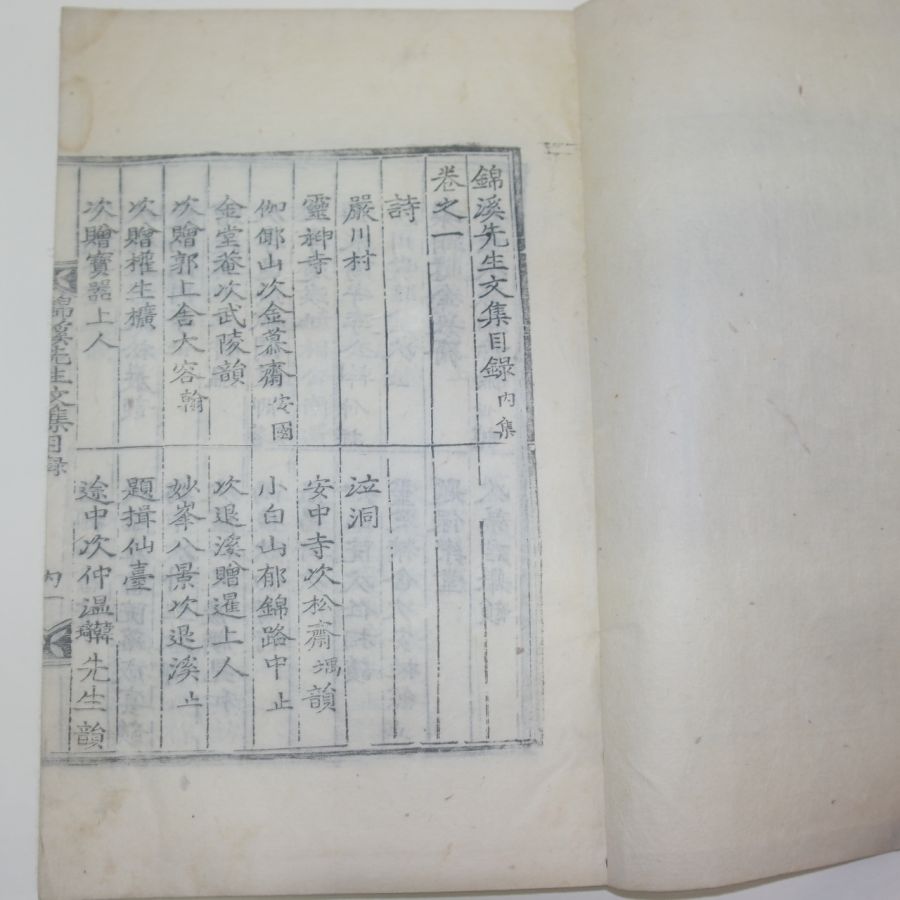 錦溪先生文集目錄 內集
卷之一
詩
嚴川村
泣洞
靈神寺
安中寺次松齋 堣 韻
伽倻山次金慕齋 安國
小白山郁錦路中 止
金堂菴次武陵韻
次退溪贈暹上人
次贈郭上舍大容 翰
妙峯八景次退溪 止
次贈權生㯳
題揖仙臺
次贈寶器上人
途中次仲溫 先生韻
錦溪先生文集目錄
內一